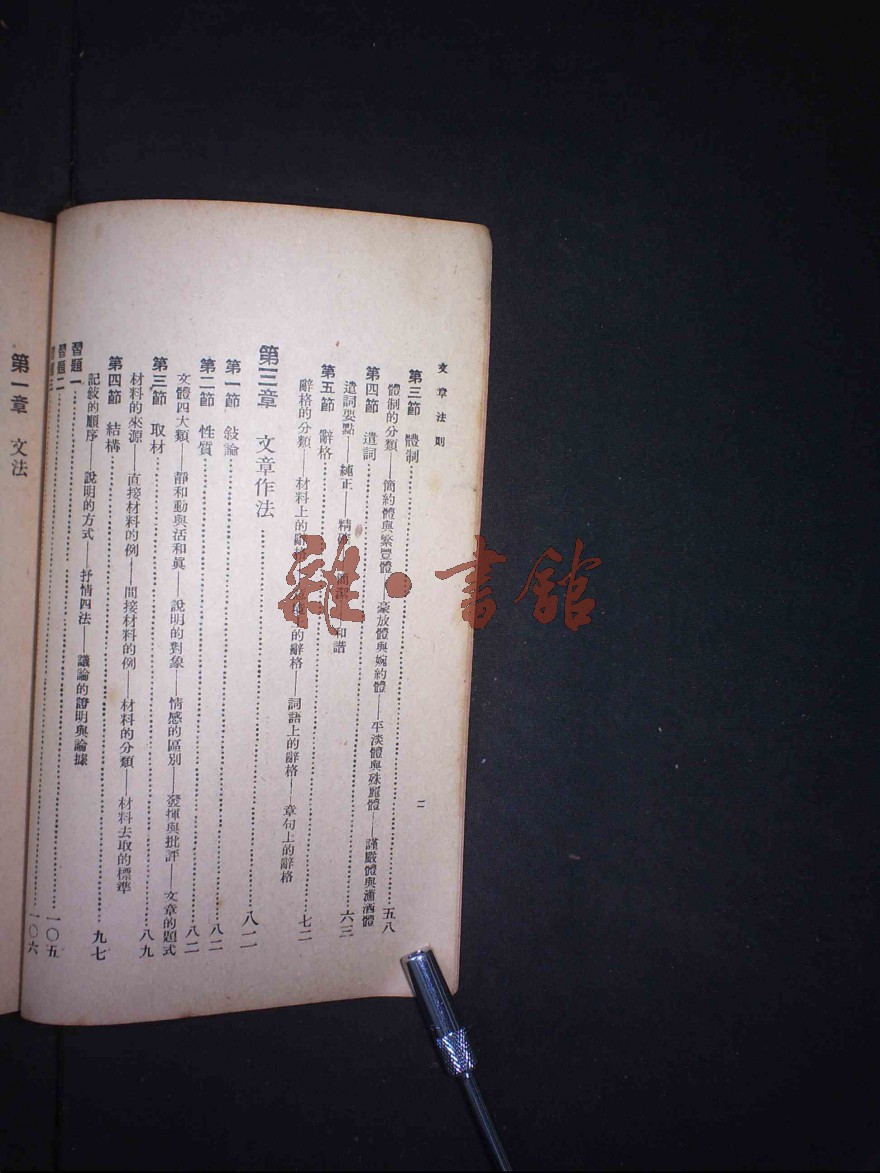 文章法則
二
第三節 體制……五八
體制的分類——簡約體與繁豐體——豪放體與婉約體——平淡體與殊麗體——謹嚴體與灑體
第四節 遣詞……六三
遣詞要點——純正——精——和諧
第五節 辭格……七二
辭格的分類——材料上的辭格——的辭格——詞語上的辭格——章句上的辭格
第三章 文章作法……八一
第一節 敍論……八二
第二節 性質……八二
文體四大類——靜和動與活和眞——說明的對象——情感的區別——發揮與批評——文章的題式
第三節 取材……八九
材料的來源——直接材料的例——間接材料的例——材料的分類——材料去取的標準
第四節 結構……九七
記敍的順序——說明的方式——抒情四法——議論的證明與論據
習題一……一〇五
習題二……一〇六
第一章 文法
雜·書館